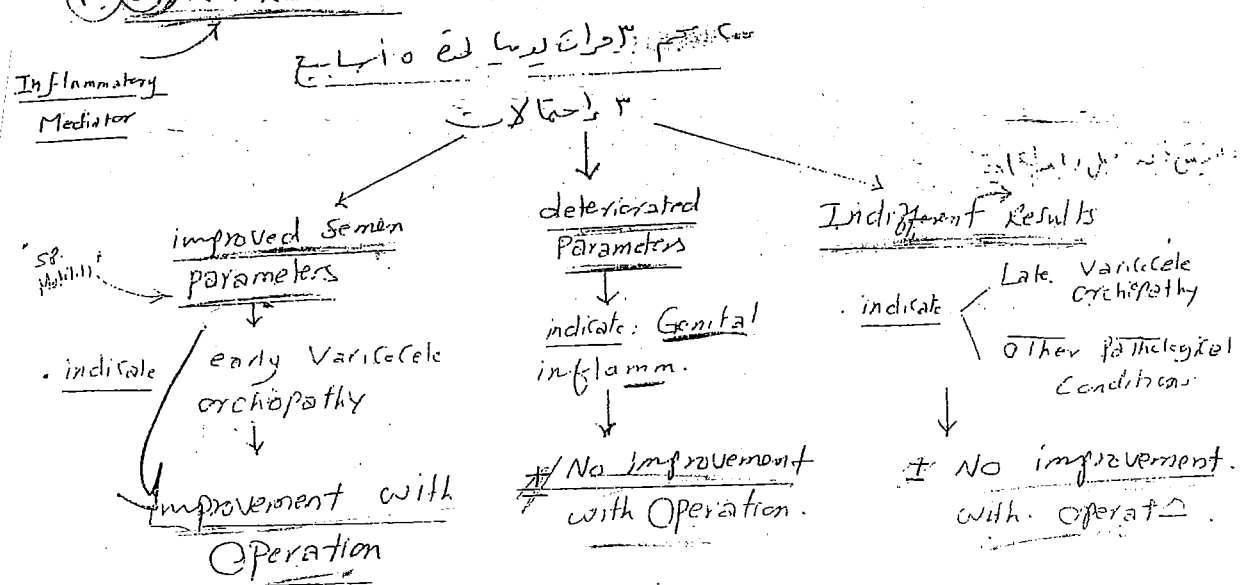 Inflammatory
Mediator
٢٠٠ مجم ٣ مرات يوميا لمدة ٥ أسابيع
٣ إحتمالات
improved Semen
parameters
indicate
early Varicocele
orchiopathy
improvement with
Operation
deteriorated
Parameters
indicate: Genital
inflamm.
No improvement
with Operation.
Indifferent Results
indicate
Late Varicocele
orchiopathy
Other pathological
Conditions
± No improvement.
with. operat